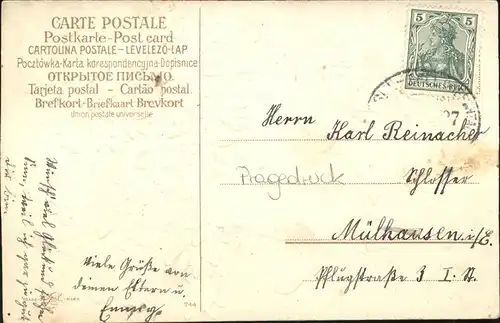 CARTE POSTALE
Postkarte-Post card
CARTOLINA POSTALE-LEVELEZŐ-LAP
Pocztówka-Karta korespondencyjna-Dopisnice
ОТКРЫТОЕ ПИСЬМО
Tarjeta postal - Cartão postal.
Brefkort-Briefkaart Brevkort
Union postale universelle
5 5
DEUTSCHES REICH
07
Herrn Karl Reinacher
Schlosser
Prägedruck
Mülhausen i/E.
Pflugstraße 3 I. St.
Viele Grüße von
deinen Eltern u.
Wünsch' viel Glück und
weil ich gar zu gut